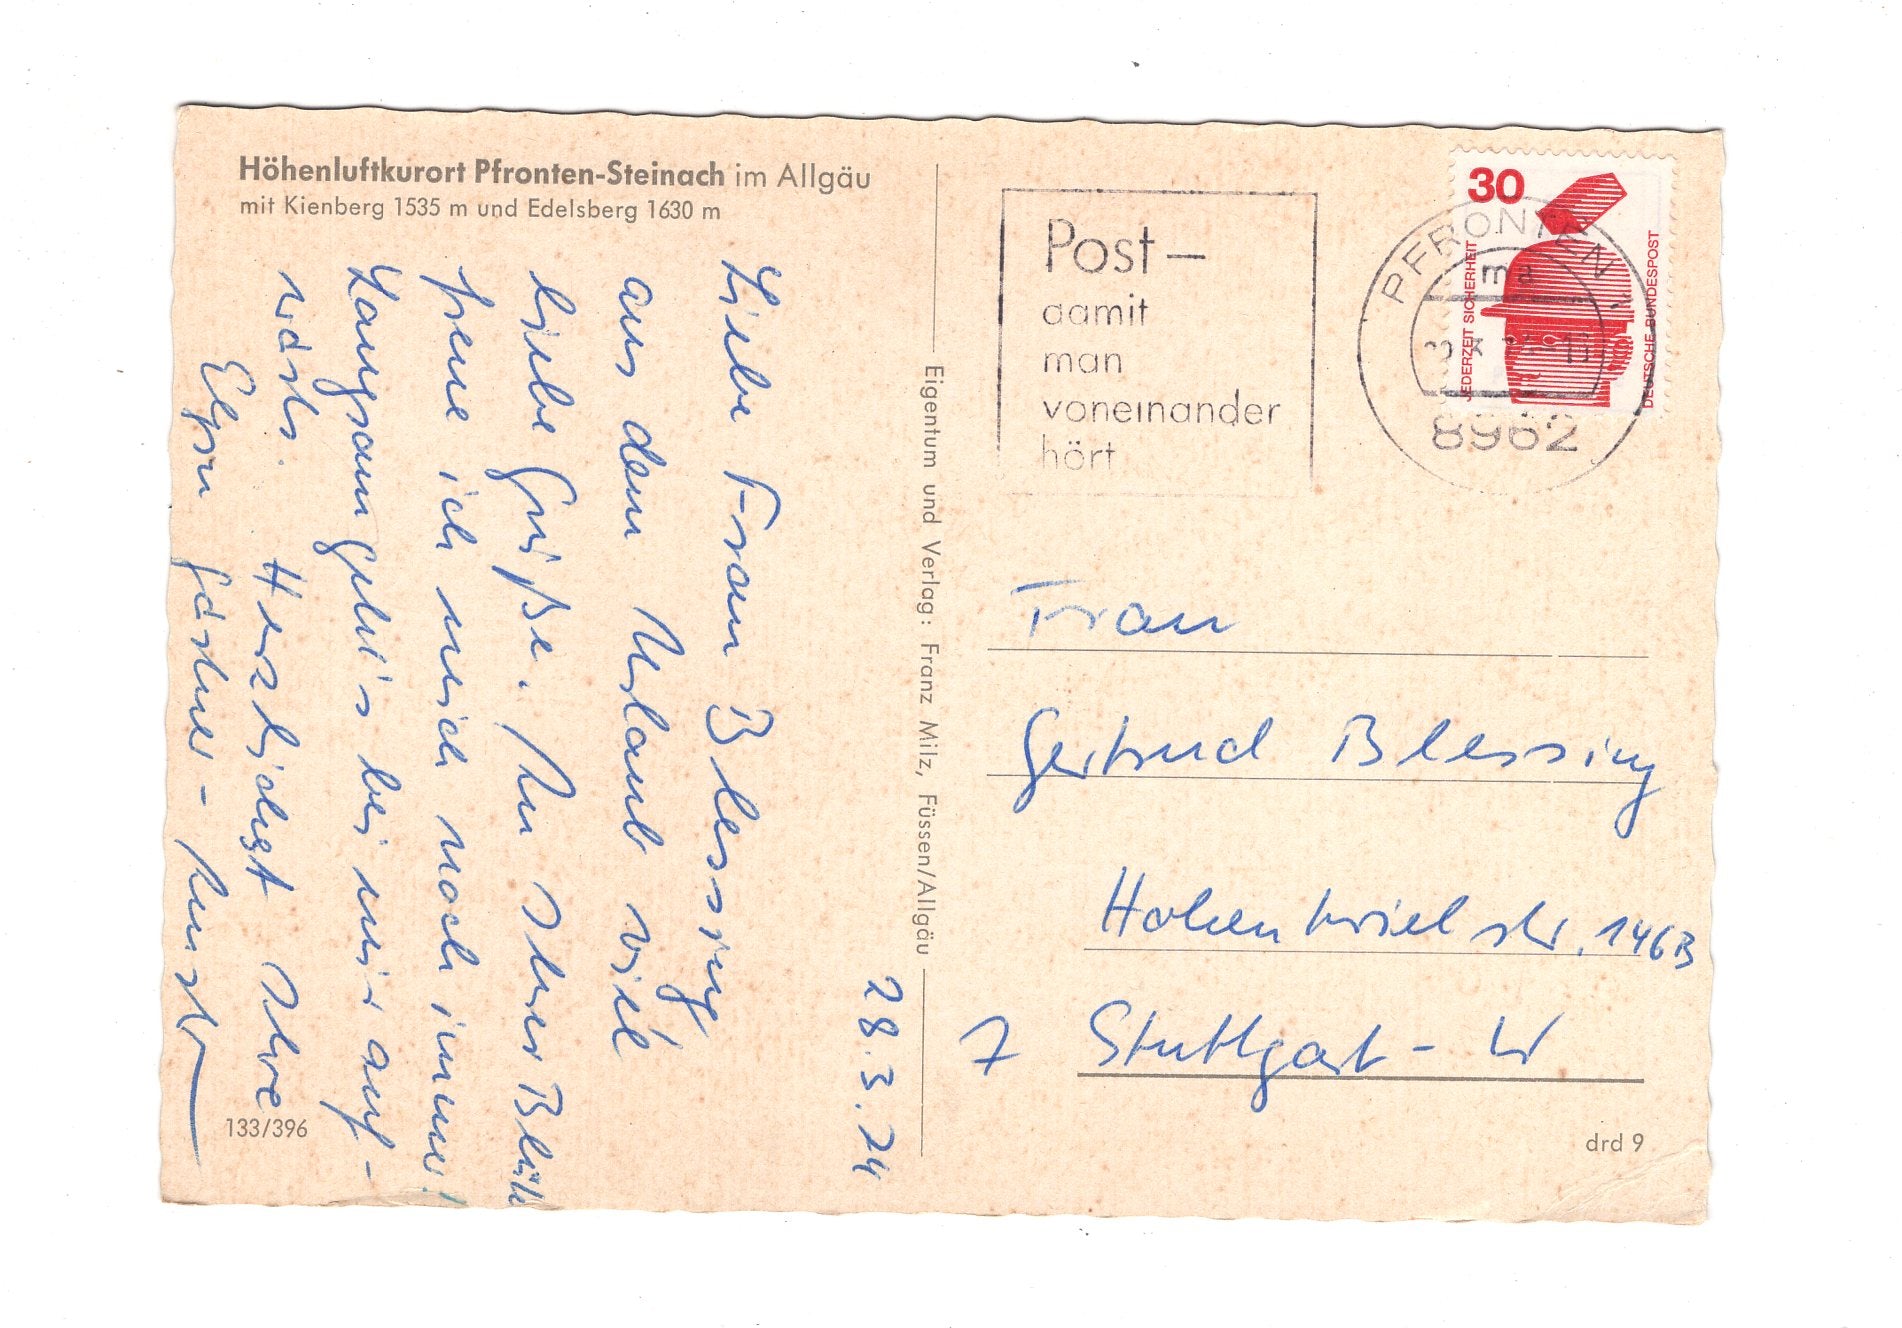 Höhenluftkurort Pfronten-Steinach im Allgäu
mit Kienberg 1535 m und Edelsberg 1630 m
28.3.74
Liebe Frau Blessing
aus dem Urlaub viel
liebe Grüße. An Ihrer Blüte
freue ich mich noch immer!
Langsam geht's bei mir auf-
wärts. Herzlichst Ihre
133/396
Eigentum und Verlag: Franz Milz, Füssen/Allgäu
Post –
damit
man
voneinander
hört
PFRONTEN 1
ma
8962
30
JEDERZEIT SICHERHEIT
DEUTSCHE BUNDESPOST
Frau
Gertrud Blessing
Hohentwielstr. 146B
7 Stuttgart - W
drd 9